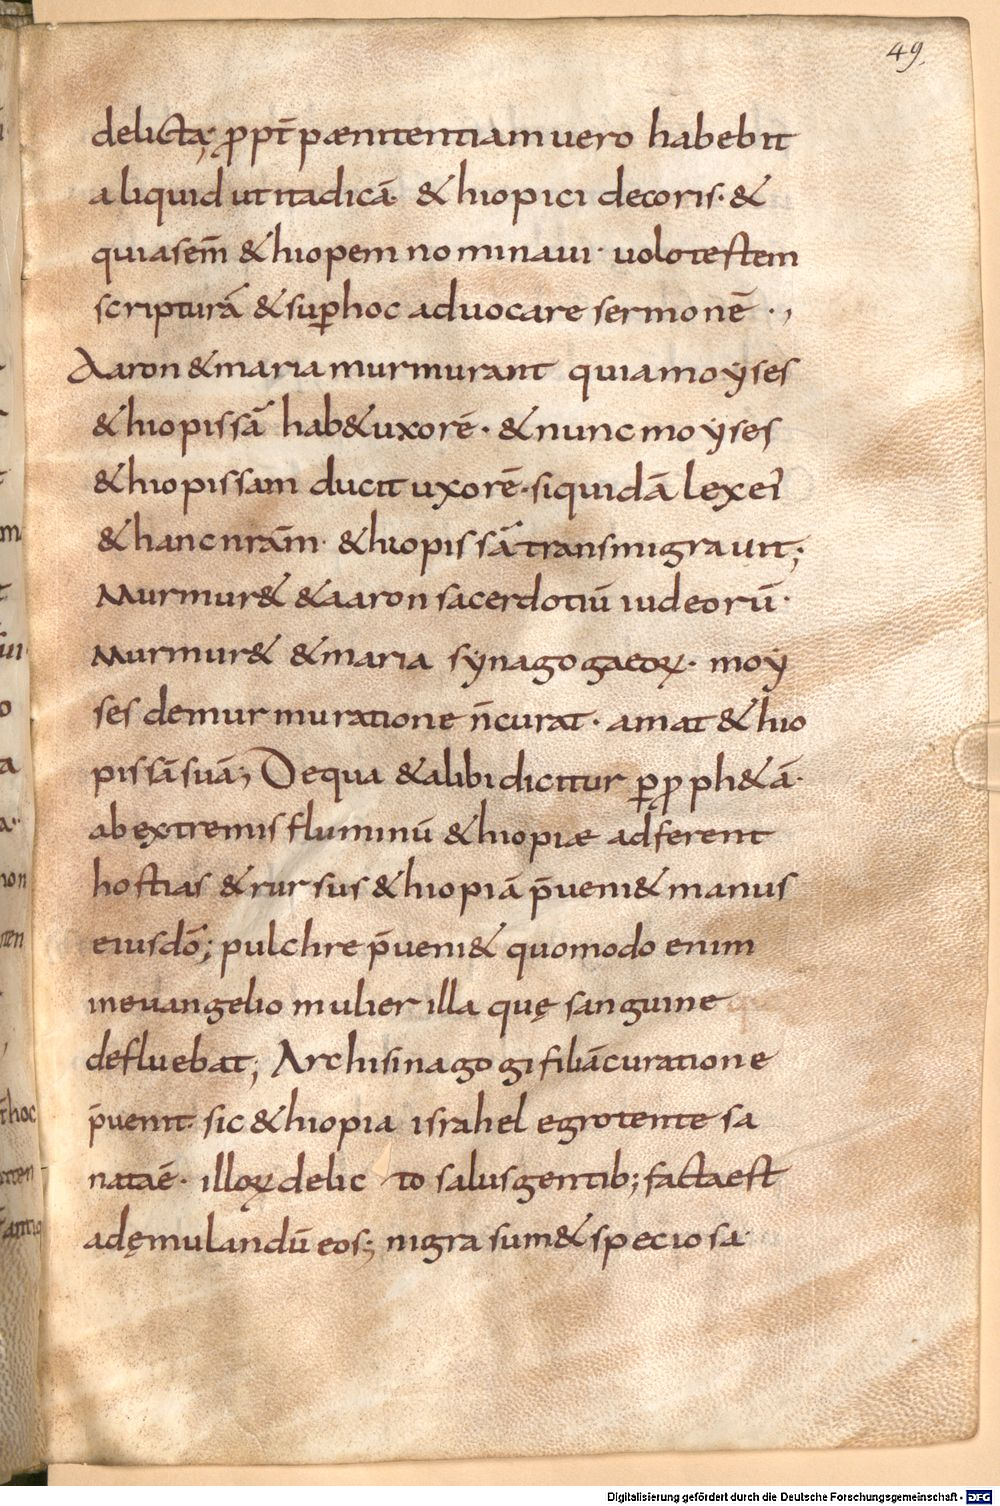 49.
delicta; ꝓpt̄ pænitentiam uero habebit
aliquid ut ita dicā· &hiopici decoris· &
quia sem̄ &hiopem nominaui· uolo testem
scripturā & sup̱ hoc aduocare sermonē·,
Aaron & maria murmurant quia moẏses
&hiopissā hab& uxorē· & nunc moẏses
&hiopissam ducit uxorē· siquidā lex ei'
& hanc nr̄am· &hiopissā transmigrauit;
Murmur& & aaron sacerdotiū iudeorū·
Murmur& & maria sẏnagoga eoꝝ· moẏ
ses de murmuratione n̄ curat· amat &hio
pissā suā; De qua & alibi dicitur ꝑ ꝓph&ā·
ab extremis fluminū &hiopiæ adferent
hostias & rursus &hiopiā p̄ueni& manus
eius dō; pulchre p̄ueni& quomodo enim
in euangelio mulier illa quę sanguine
defluebat; Archisinagogi filiā curatione
p̄uenit· sic &hiopia israhel egrotente sa
nata ē· illoꝝ delic to salus gentib; facta est
ad ęmulandū eos; nigra sum & speciosa·
m
ui
o
a
a·
non
hoc
Digitalisierung gefördert durch die Deutsche Forschungsgemeinschaft - DFG